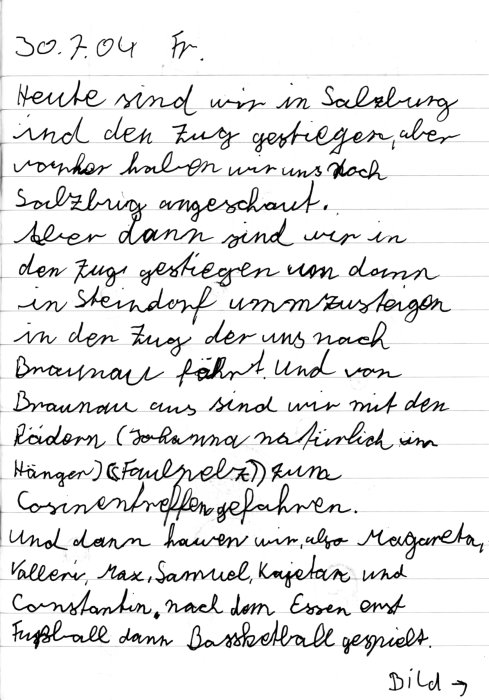 30.7.04 Fr.
Heute sind wir in Salzburg
ind den Zug gestiegen, aber
vorher haben wir uns noch
Salzbrug angeschaut.
Aber dann sind wir in
den Zug gestiegen um dann
in Steindorf ummzusteigen
in den Zug der uns nach
Braunau fährt. Und von
Braunau aus sind wir mit den
Rädern (Johanna natürlich im
Hänger) ((Faulpelz)) zum
Cosinentreffen gefahren.
Und dann hawen wir, also Magareta,
Valleri, Max, Samuel, Kajetan und
Constantin, nach dem Essen erst
Fußball dann Bassketball gespielt.
Bild →